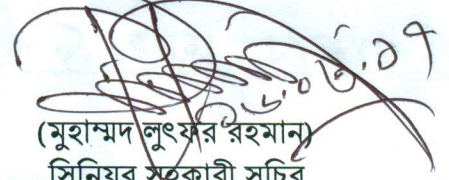 (মুহাম্মদ লুৎফর রহমান)
সিনিয়র সহকারী সচিব